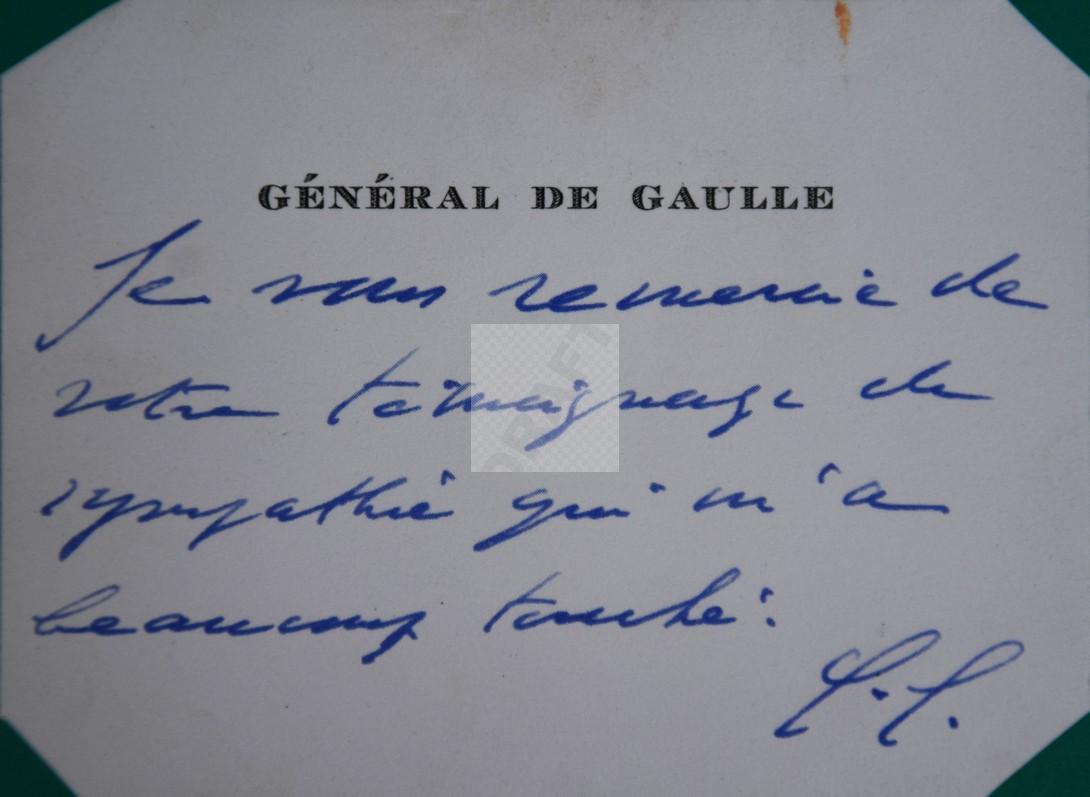 GÉNÉRAL DE GAULLE
Je vous remercie de
votre témoignage de
sympathie qui m'a
beaucoup touché.
DRAFT